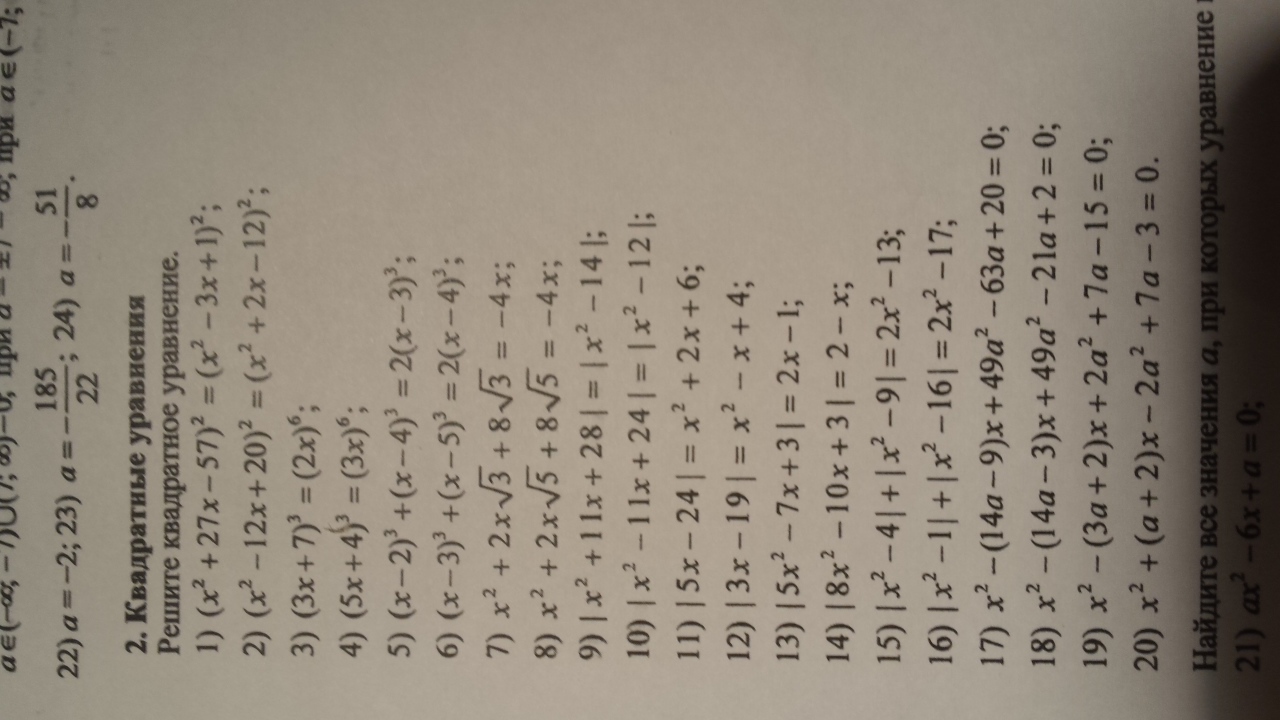 a∈(−∞; −7)∪(7; ∞) при a∈(−7;
22) a = −2; 23) a = −185/22; 24) a = −51/8.
2. Квадратные уравнения
Решите квадратное уравнение.
1) (x² + 27x − 57)² = (x² − 3x + 1)²;
2) (x² − 12x + 20)² = (x² + 2x − 12)²;
3) (3x + 7)³ = (2x)⁶;
4) (5x + 4)³ = (3x)⁶;
5) (x − 2)³ + (x − 4)³ = 2(x − 3)³;
6) (x − 3)³ + (x − 5)³ = 2(x − 4)³;
7) x² + 2x√3 + 8√3 = −4x;
8) x² + 2x√5 + 8√5 = −4x;
9) | x² + 11x + 28 | = | x² − 14 |;
10) | x² − 11x + 24 | = | x² − 12 |;
11) | 5x − 24 | = x² + 2x + 6;
12) | 3x − 19 | = x² − x + 4;
13) | 5x² − 7x + 3 | = 2x − 1;
14) | 8x² − 10x + 3 | = 2 − x;
15) | x² − 4 | + | x² − 9 | = 2x² − 13;
16) | x² − 1 | + | x² − 16 | = 2x² − 17;
17) x² − (14a − 9)x + 49a² − 63a + 20 = 0;
18) x² − (14a − 3)x + 49a² − 21a + 2 = 0;
19) x² − (3a + 2)x + 2a² + 7a − 15 = 0;
20) x² + (a + 2)x − 2a² + 7a − 3 = 0.
Найдите все значения a, при которых уравнение
21) ax² − 6x + a = 0;